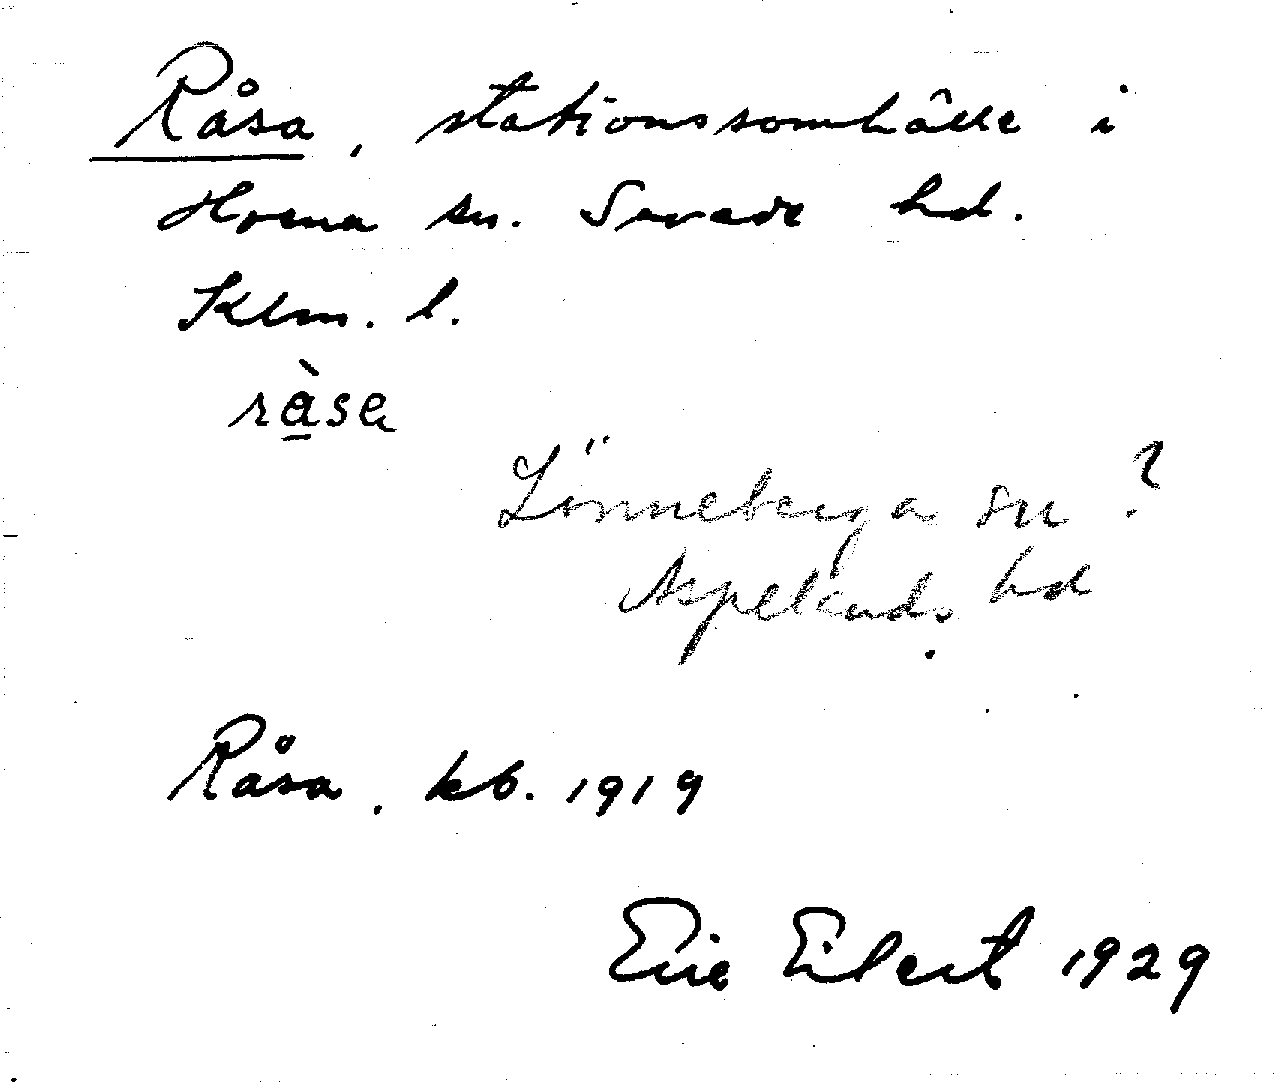 Råsa, stationssamhälle i
sn. Sevede hd.
Klm. l.
Lönneberga sn ?
Aspelands hd
Råsa. kb. 1919
Eric Eilert 1929